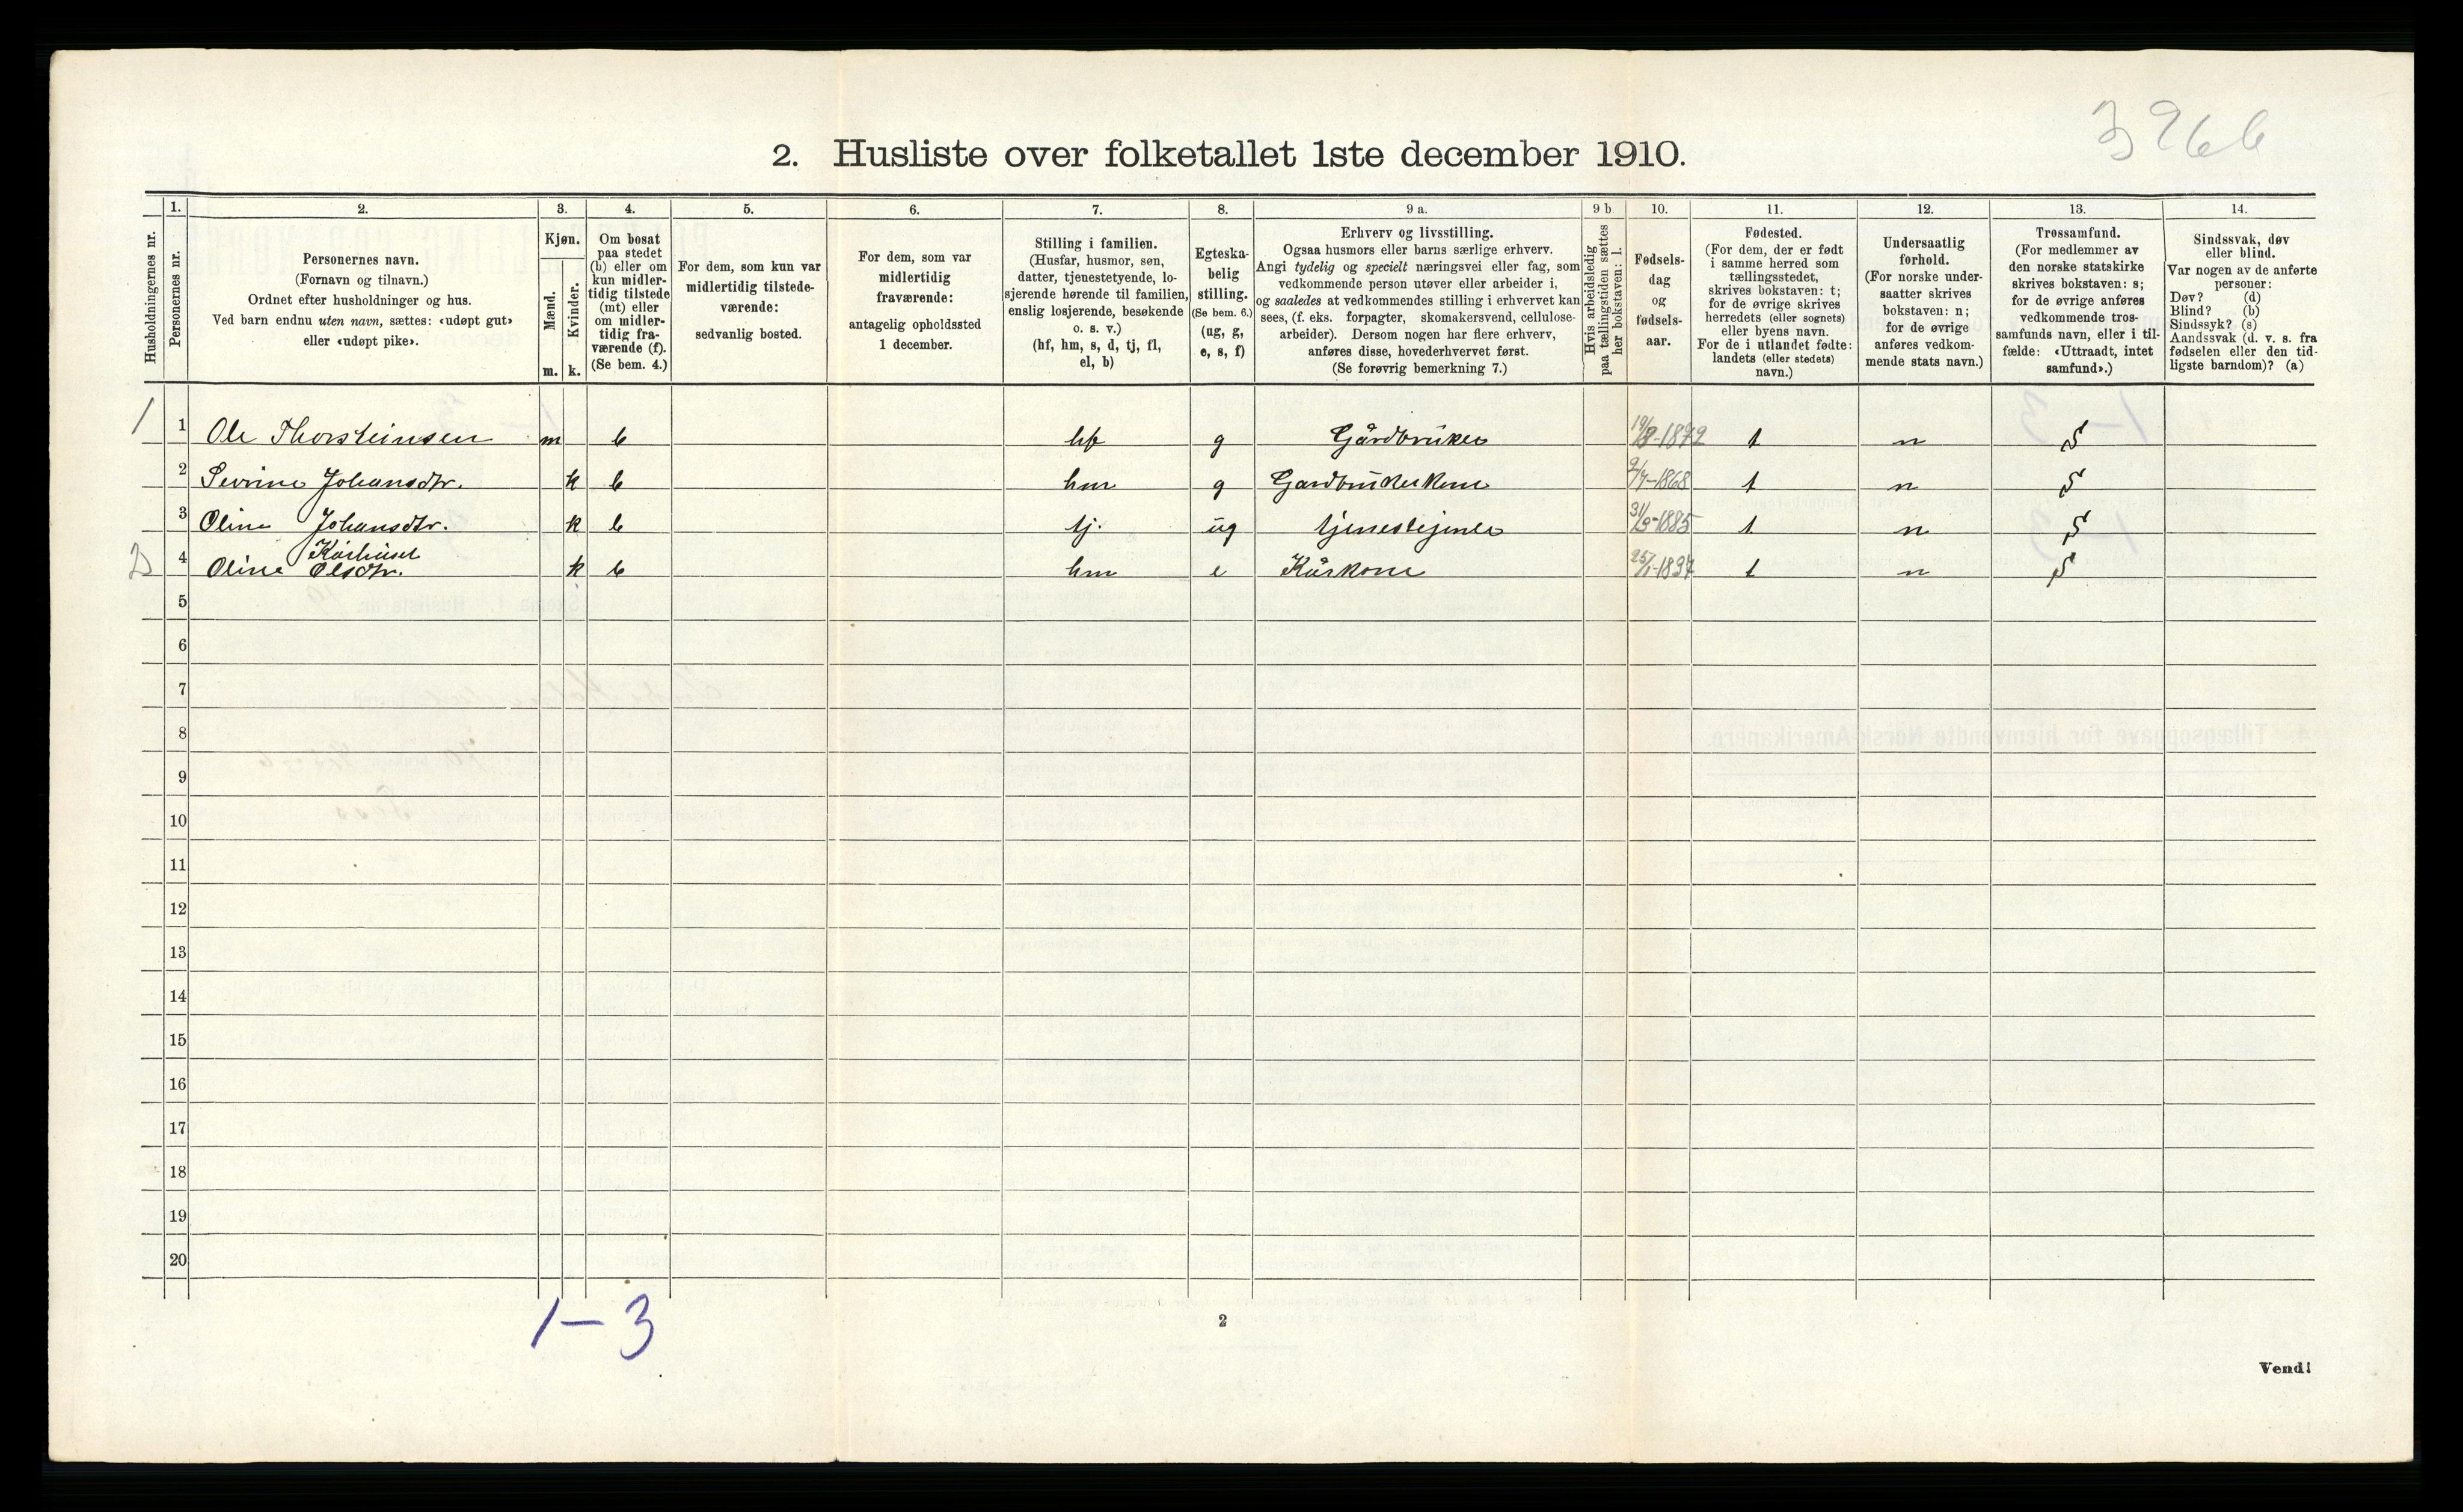 3966
2. Husliste over folketallet 1ste december 1910.
Husholdningernes nr.
1.
Personernes nr.
2.
Personernes navn.
(Fornavn og tilnavn.)
Ordnet efter husholdninger og hus.
Ved barn endnu uten navn, sættes: «udøpt gut»
eller «udøpt pike».
3.
Kjøn.
Mænd.
Kvinder.
m. k.
4.
Om bosat
paa stedet
(b) eller om
kun midler-
tidig tilstede
(mt) eller
om midler-
tidig fra-
værende (f).
(Se bem. 4.)
5.
For dem, som kun var
midlertidig tilstede-
værende:
sedvanlig bosted.
6.
For dem, som var
midlertidig
fraværende:
antagelig opholdssted
1 december.
7.
Stilling i familien.
(Husfar, husmor, søn,
datter, tjenestetyende, lo-
sjerende hørende til familien,
enslig losjerende, besøkende
o. s. v.)
(hf, hm, s, d, tj, fl,
el, b)
8.
Egteska-
belig
stilling.
(Se bem. 6.)
(ug, g,
e, s, f)
9 a.
Erhverv og livsstilling.
Ogsaa husmors eller barns særlige erhverv.
Angi tydelig og specielt næringsvei eller fag, som
vedkommende person utøver eller arbeider i,
og saaledes at vedkommendes stilling i erhvervet kan
sees, (f. eks. forpagter, skomakersvend, cellulose-
arbeider). Dersom nogen har flere erhverv,
anføres disse, hovederhvervet først.
(Se forøvrig bemerkning 7.)
9 b.
Hvis arbeidsledig
paa tællingstiden sættes
her bokstaven: l.
10.
Fødsels-
dag
og
fødsels-
aar.
11.
Fødested.
(For dem, der er født
i samme herred som
tællingsstedet,
skrives bokstaven: t;
for de øvrige skrives
herredets (eller sognets)
eller byens navn.
For de i utlandet fødte:
landets (eller stedets)
navn.)
12.
Undersaatlig
forhold.
(For norske under-
saatter skrives
bokstaven: n;
for de øvrige
anføres vedkom-
mende stats navn.)
13.
Trossamfund.
(For medlemmer av
den norske statskirke
skrives bokstaven: s;
for de øvrige anføres
vedkommende tros-
samfunds navn, eller i til-
fælde: «Uttraadt, intet
samfund».)
14.
Sindssvak, døv
eller blind.
Var nogen av de anførte
personer:
Døv? (d)
Blind? (b)
Sindssyk? (s)
Aandssvak (d. v. s. fra
fødselen eller den tid-
ligste barndom)? (a)
1 1 Ole Thorsteinsen m b hf g Gårdbruker 1872 t n S
2 Sevrine Johansdtr. k b hm g Gardbrukerkone 1868 t n S
3 Oline Johansdtr. k b tj. ug tjenestejente 1885 t n S
Kårhuset
2 4 Oline Olsdtr. k b hm e Kårkone t n S
5
6
7
8
9
10
11
12
13
14
15
16
17
18
19
20
1-3
2
Vend!